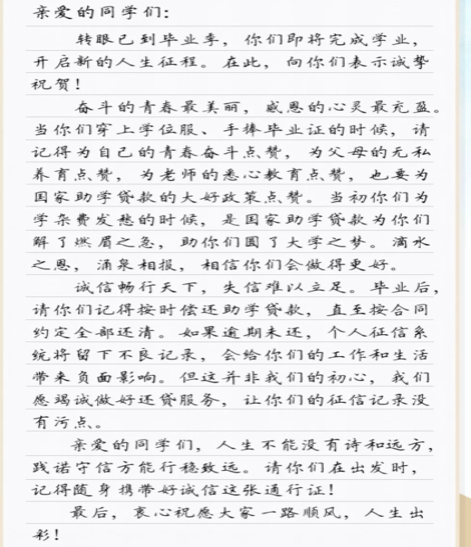 亲爱的同学们：
转眼已到毕业季，你们即将完成学业，
开启新的人生征程。在此，向你们表示诚挚
祝贺！
奋斗的青春最美丽，感恩的心灵最充盈。
当你们穿上学位服、手捧毕业证的时候，请
记得为自己的青春奋斗点赞，为父母的无私
养育点赞，为老师的悉心教育点赞，也要为
国家助学贷款的大好政策点赞。当初你们为
学杂费发愁的时候，是国家助学贷款为你们
解了燃眉之急，助你们圆了大学之梦。滴水
之恩，涌泉相报，相信你们会做得更好。
诚信畅行天下，失信难以立足。毕业后，
请你们记得按时偿还助学贷款，直至按合同
约定全部还清。如果逾期未还，个人征信系
统将留下不良记录，会给你们的工作和生活
带来负面影响。但这并非我们的初心，我们
愿竭诚做好还贷服务，让你们的征信记录没
有污点。
亲爱的同学们，人生不能没有诗和远方，
践诺守信方能行稳致远。请你们在出发时，
记得随身携带好诚信这张通行证！
最后，衷心祝愿大家一路顺风，人生出
彩！